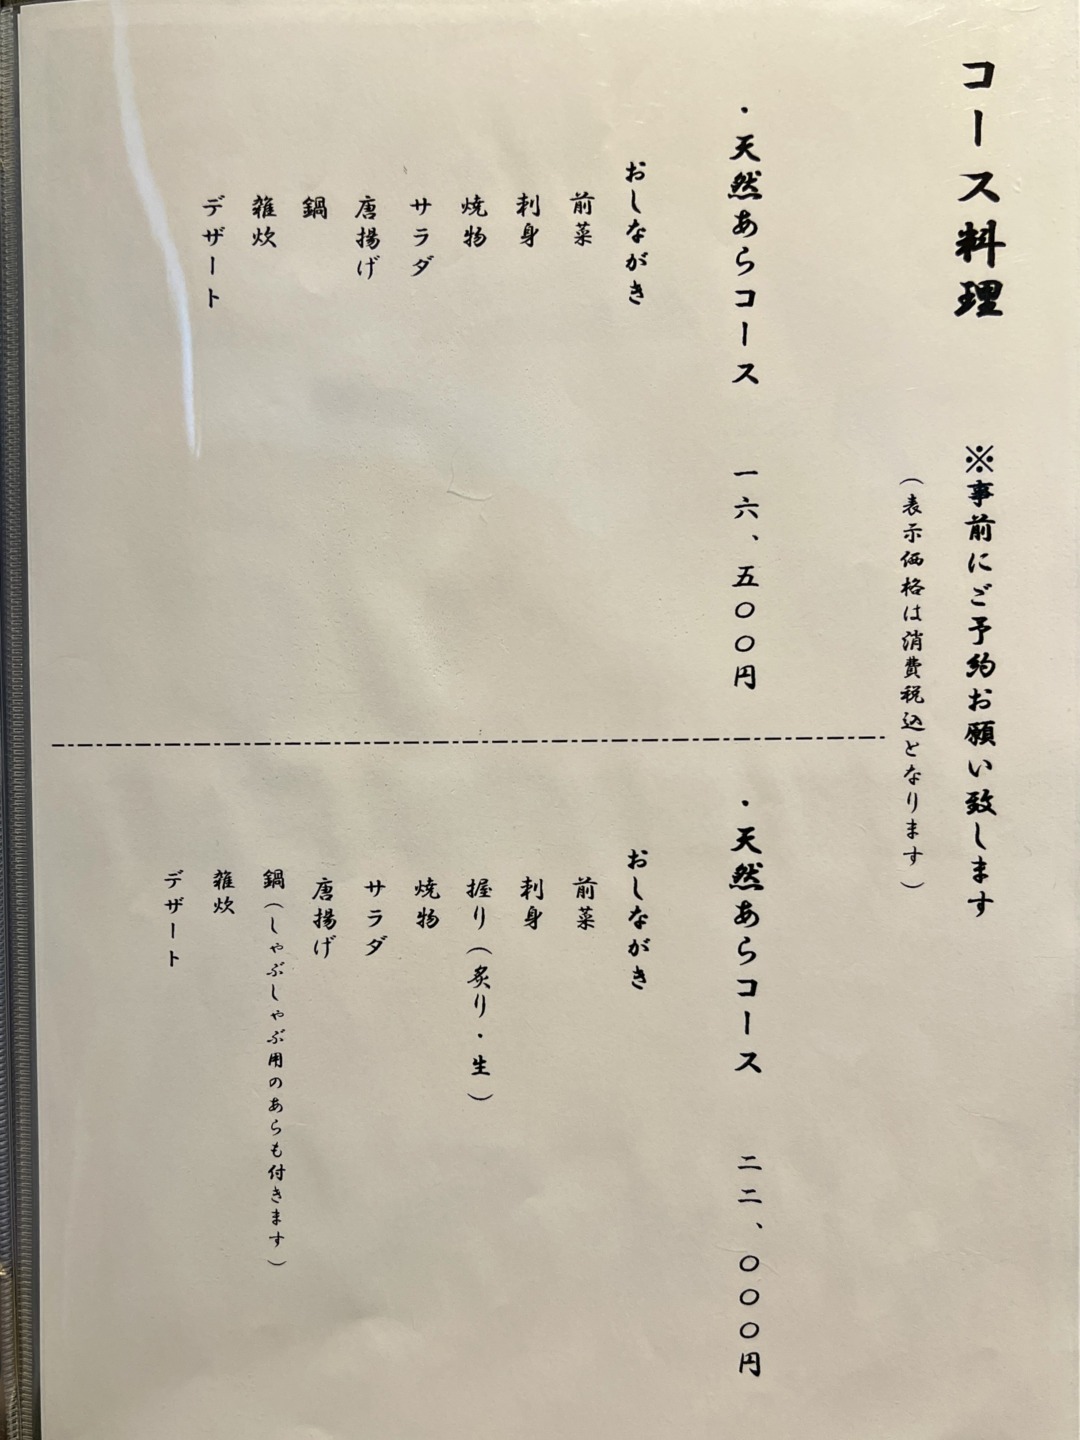 コース料理　※事前にご予約お願い致します
（表示価格は消費税込となります）
・天然あらコース　一六、五〇〇円
おしながき
前菜
刺身
焼物
サラダ
唐揚げ
鍋
雑炊
デザート
・天然あらコース　二二、〇〇〇円
おしながき
前菜
刺身
握り（炙り・生）
焼物
サラダ
唐揚げ
鍋（しゃぶしゃぶ用のあらも付きます）
雑炊
デザート